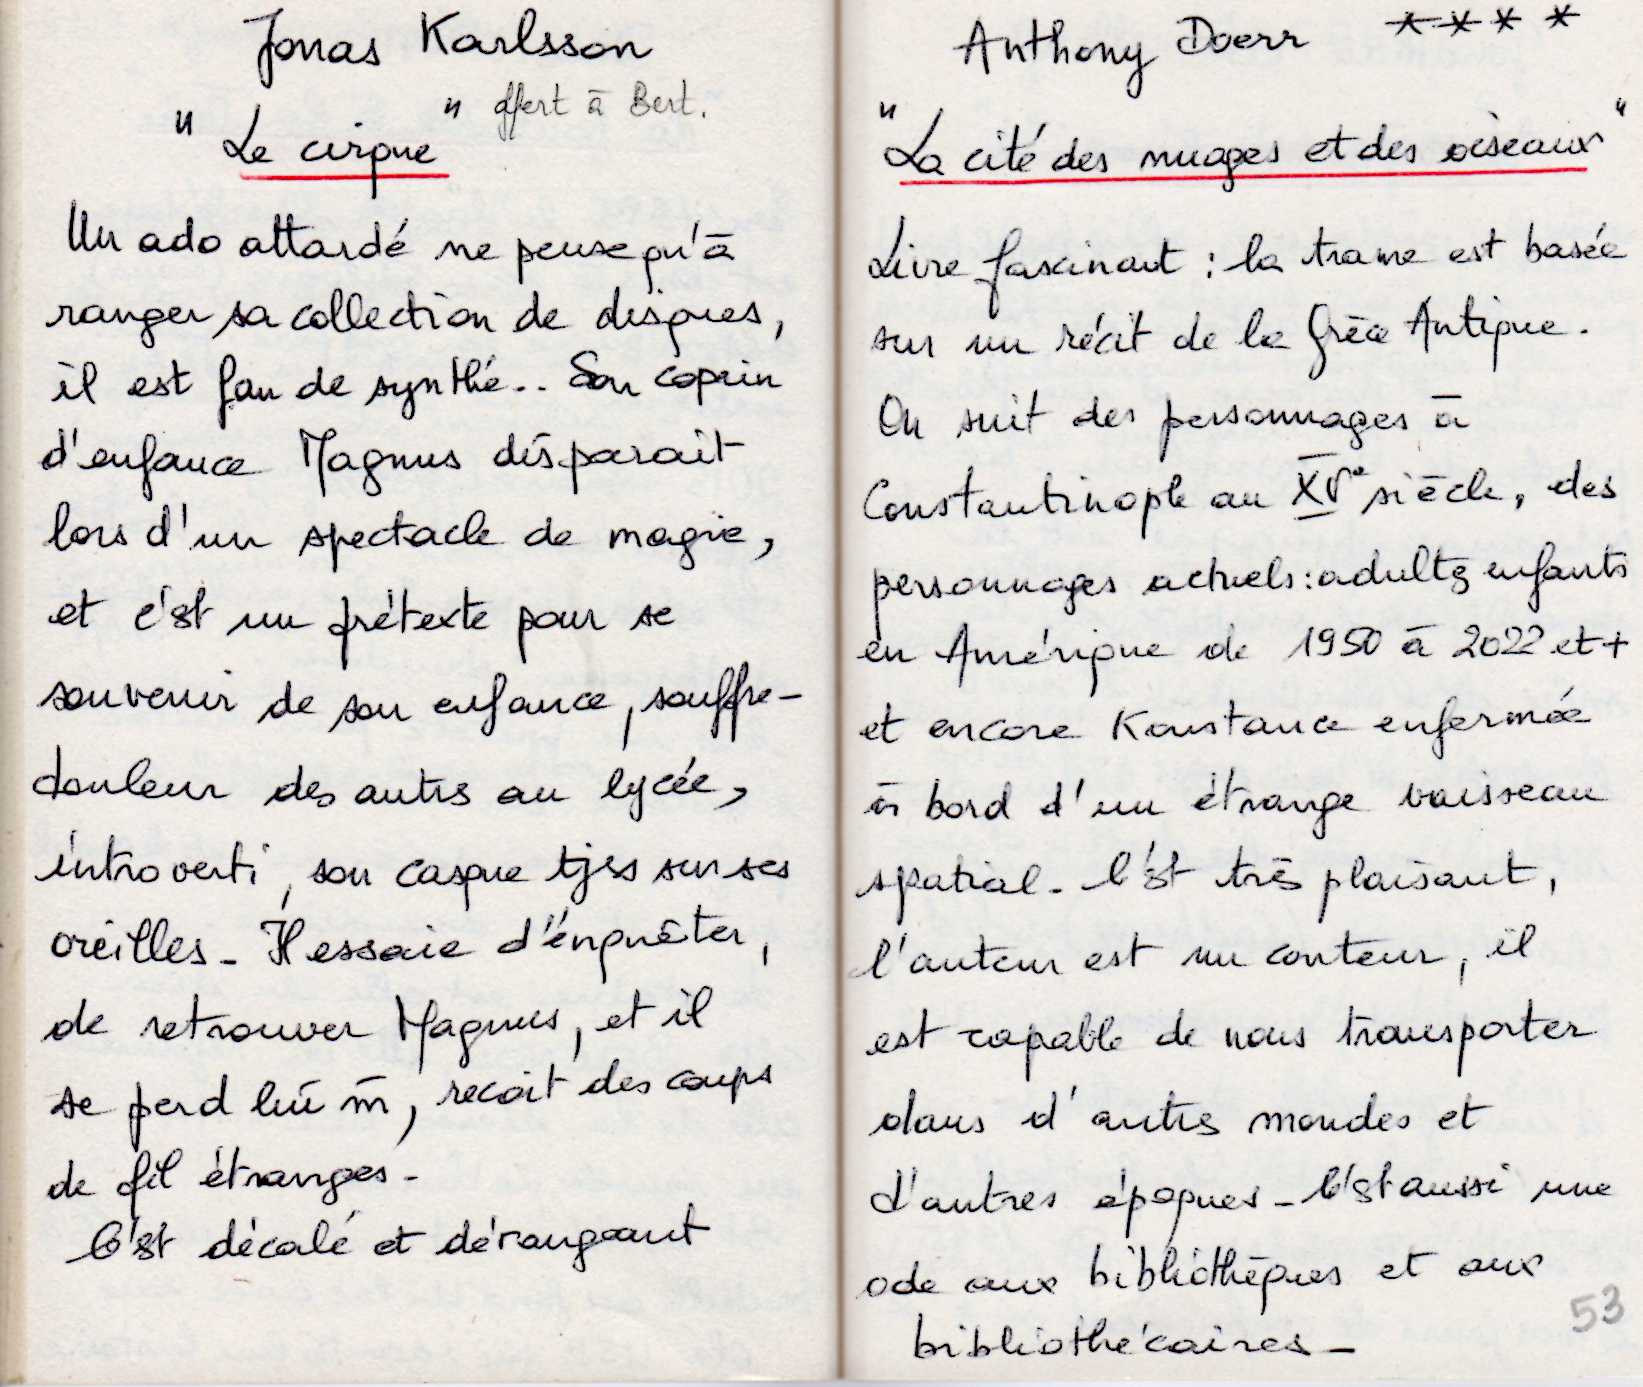 Jonas Karlsson
" Le cirque " offert à Bert.
Un ado attardé ne pense qu'à
ranger sa collection de disques,
il est fan de synthé.. Son copain
d'enfance Magnus disparait
lors d'un spectacle de magie,
et c'est un prétexte pour se
souvenir de son enfance, souffre-
douleur des autres au lycée,
introverti, son casque tjrs sur ses
oreilles - Il essaie d'enquêter,
de retrouver Magnus, et il
se perd lui m̄, recoit des coups
de fil étranges -
C'est décalé et dérangeant
Anthony Doerr ****
"La cité des nuages et des oiseaux"
Livre fascinant : la trame est basée
sur un récit de la Grèce Antique.
On suit des personnages à
Constantinople au XVe siècle, des
personnages actuels : adultes enfants
en Amérique de 1950 à 2022 et +
et encore Konstance enfermée
à bord d'un étrange vaisseau
spatial - C'est très plaisant,
l'auteur est un conteur, il
est capable de nous transporter
dans d'autres mondes et
d'autres époques - C'est aussi une
ode aux bibliothèques et aux
bibliothécaires -
53